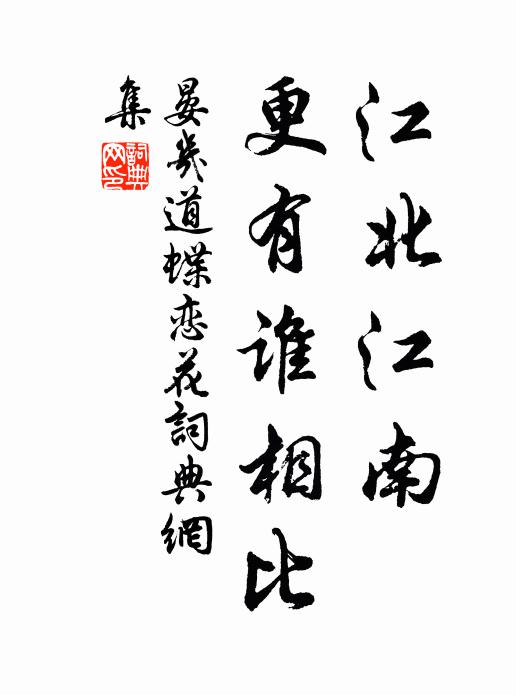 江北江南
更有谁相比
晏幾道蝶恋花詞典網
集
詞典
网印